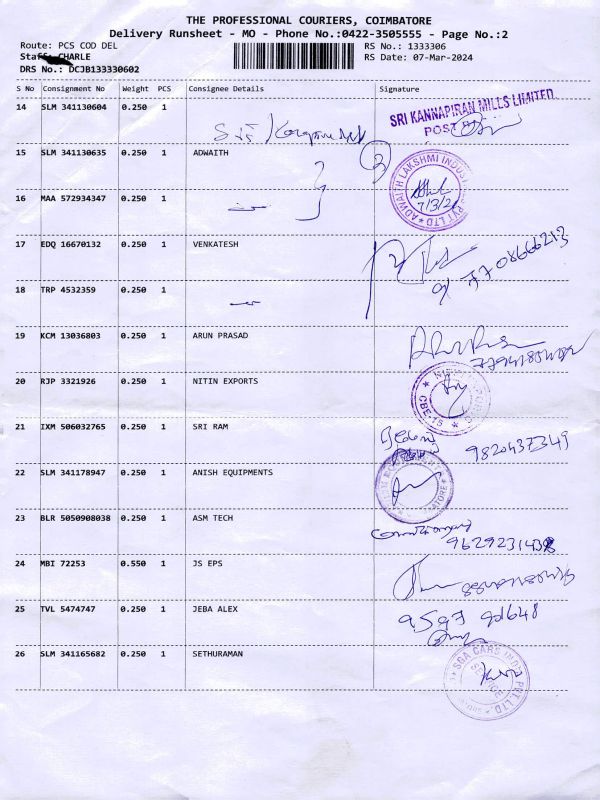 THE PROFESSIONAL COURIERS, COIMBATORE
Delivery Runsheet - MO - Phone No.:0422-3505555 - Page No.:2
Route: PCS COD DEL
RS No.: 1333306
Staff: CHARLE
RS Date: 07-Mar-2024
DRS No.: DCJB133330602
S No Consignment No Weight PCS Consignee Details Signature
14 SLM 341130604 0.250 1
SRI KANNAPIRAN MILLS LIMITED
POST
15 SLM 341130635 0.250 1 ADWAITH
ADWAITH LAKSHMI INDUSTRIES PVT LTD
7/3/24
16 MAA 572934347 0.250 1
17 EDQ 16670132 0.250 1 VENKATESH
7708666213
18 TRP 4532359 0.250 1
19 KCM 13036803 0.250 1 ARUN PRASAD
20 RJP 3321926 0.250 1 NITIN EXPORTS
CBE-15
21 IXM 506032765 0.250 1 SRI RAM
9820437349
22 SLM 341178947 0.250 1 ANISH EQUIPMENTS
23 BLR 5050908038 0.250 1 ASM TECH
24 MBI 72253 0.550 1 JS EPS
25 TVL 5474747 0.250 1 JEBA ALEX
26 SLM 341165682 0.250 1 SETHURAMAN
SGA CARS INDIA PVT. LTD.